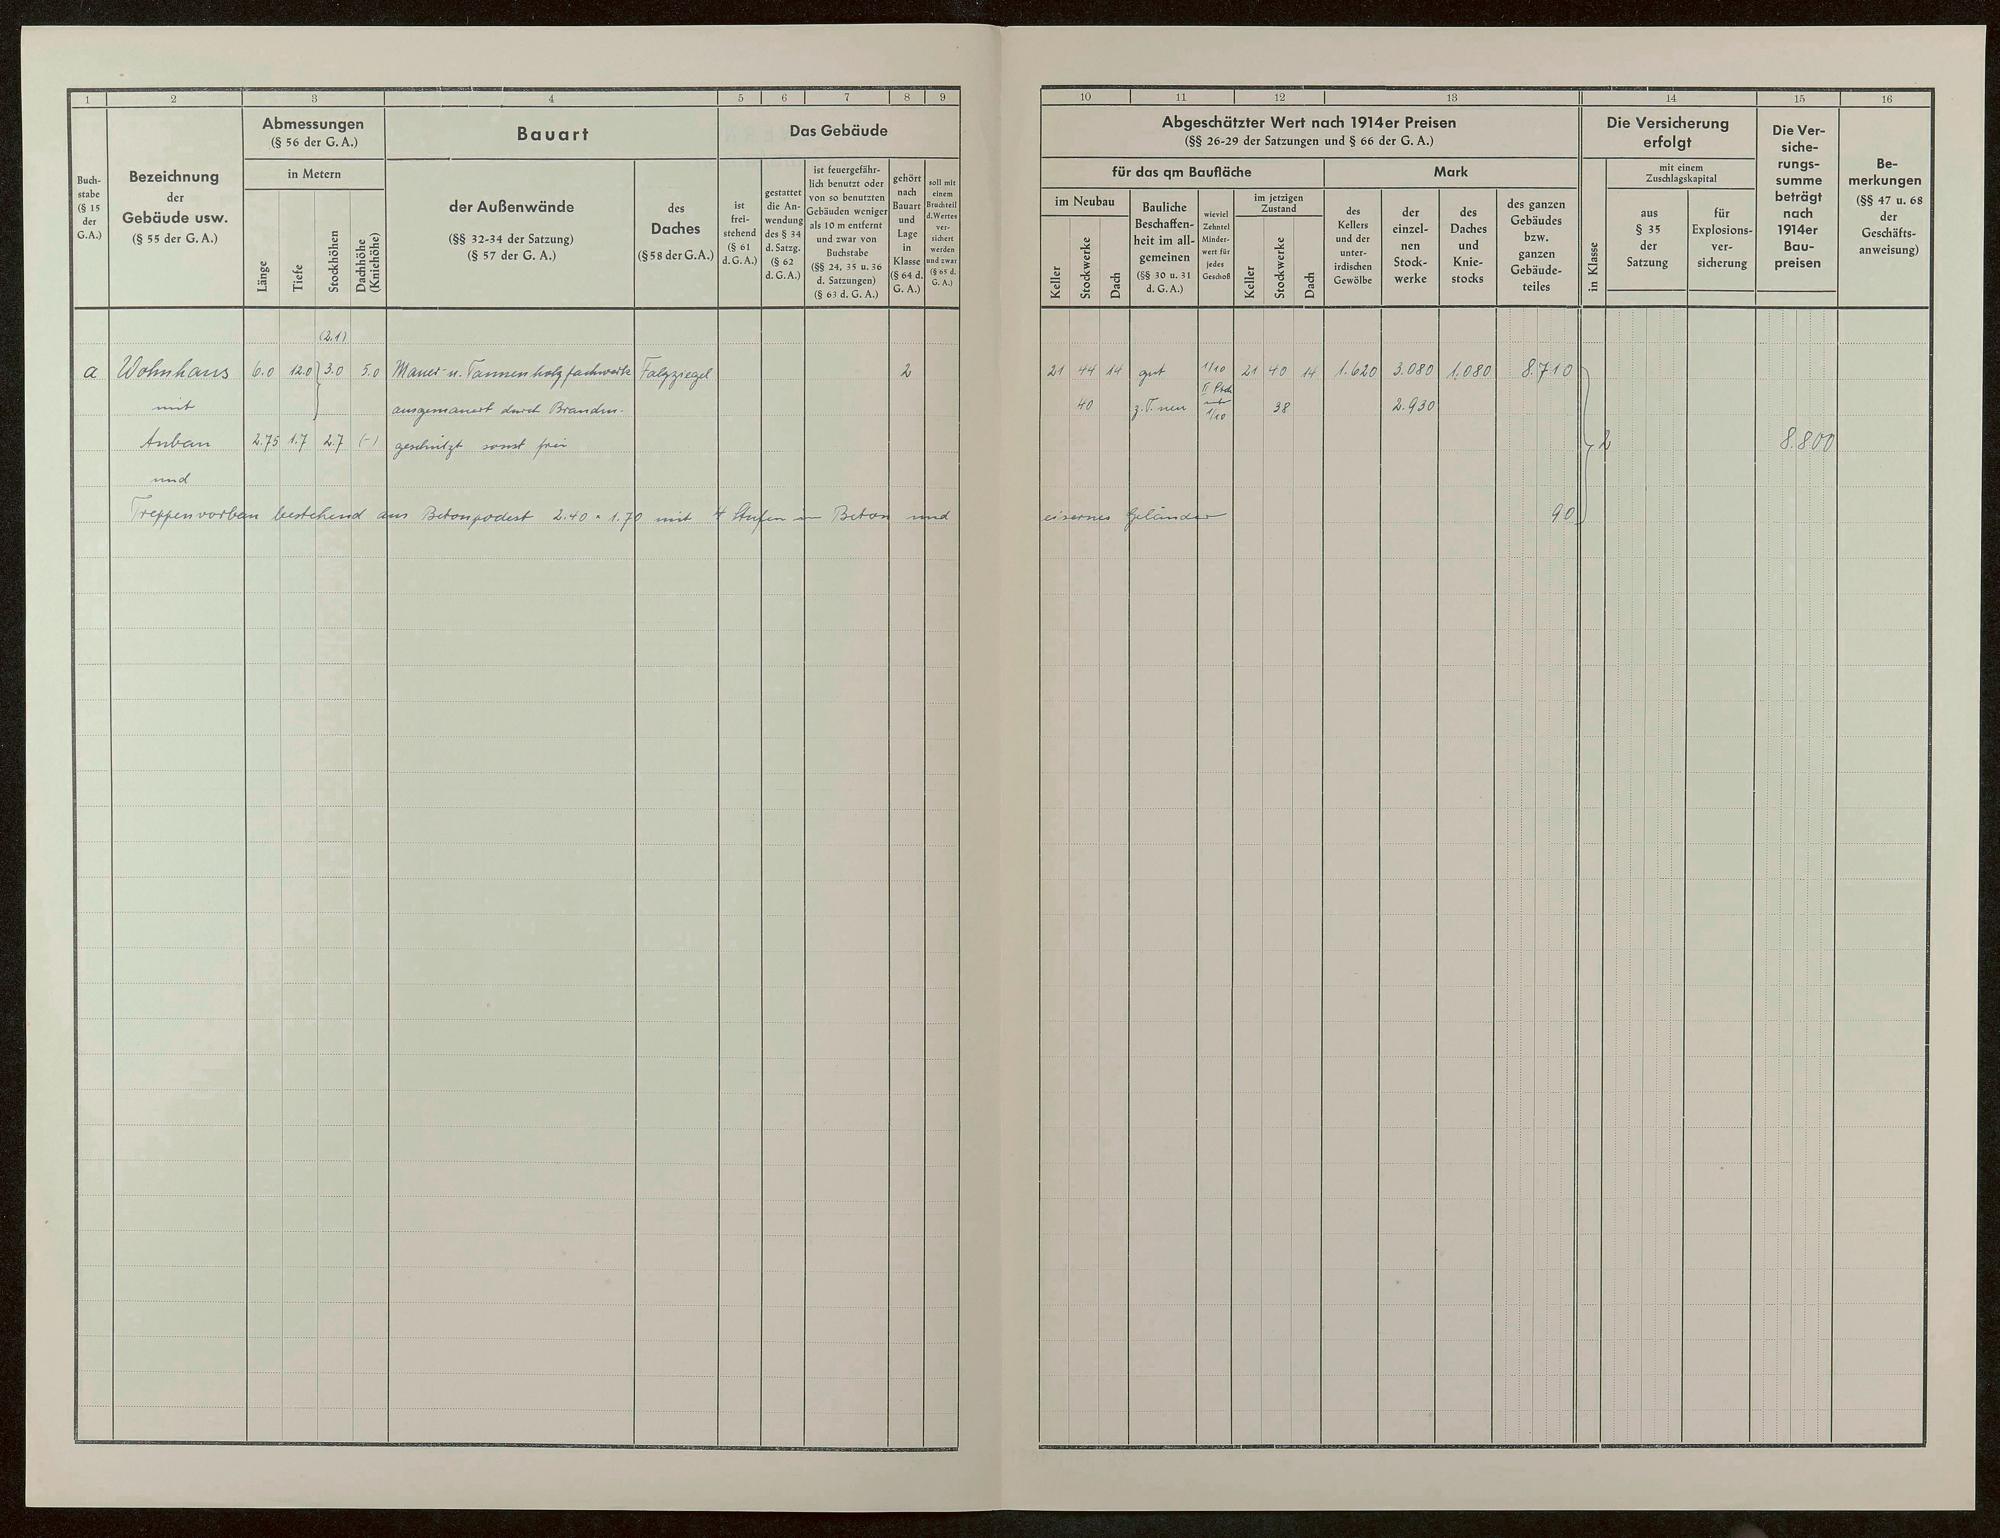 1 2 3 4 5 6 7 8 9
Abmessungen
(§ 56 der G. A.)
in Metern
Bauart
Das Gebäude
Buch-
stabe
(§ 15
der
G.A.)
Bezeichnung
der
Gebäude usw.
(§ 55 der G. A.)
Länge
Tiefe
Stockhöhen
Dachhöhe
(Kniehöhe)
der Außenwände
(§§ 32-34 der Satzung)
(§ 57 der G. A.)
des
Daches
(§ 58 der G. A.)
ist
frei-
stehend
(§ 61
d. G. A.)
gestattet
die An-
wendung
des § 34
d. Satzg.
(§ 62
d. G. A.)
ist feuergefähr-
lich benutzt oder
von so benutzten
Gebäuden weniger
als 10 m entfernt
und zwar von
Buchstabe
(§§ 24, 35 u. 36
d. Satzungen)
(§ 63 d. G. A.)
gehört
nach
Bauart
und
Lage
in
Klasse
(§ 64 d.
G. A.)
soll mit
einem
Bruchteil
d. Wertes
ver-
sichert
werden
und zwar
(§ 65 d.
G. A.)
(2.1)
a Wohnhaus 6.0 12.0 3.0 5.0 Mauer- u. Tannenholzfachwerk Falzziegel 2
mit ausgemauert durch Brandm.
Anbau 2.75 1.7 2.7 (-) geschützt sonst frei
und
Treppenvorbau bestehend aus Betonpodest 2.40 × 1.70 mit 4 Stufen in Beton und
10 11 12 13 14 15 16
Abgeschätzter Wert nach 1914er Preisen
(§§ 26-29 der Satzungen und § 66 der G. A.)
für das qm Baufläche
Mark
im Neubau
Keller
Stockwerke
Dach
Bauliche
Beschaffen-
heit im all-
gemeinen
(§§ 30 u. 31
d. G. A.)
wieviel
Zehntel
Minder-
wert für
jedes
Geschoß
im jetzigen
Zustand
Keller
Stockwerke
Dach
des
Kellers
und der
unter-
irdischen
Gewölbe
der
einzel-
nen
Stock-
werke
des
Daches
und
Knie-
stocks
des ganzen
Gebäudes
bzw.
ganzen
Gebäude-
teiles
Die Versicherung
erfolgt
in Klasse
mit einem
Zuschlagskapital
aus
§ 35
der
Satzung
für
Explosions-
ver-
sicherung
Die Ver-
siche-
rungs-
summe
beträgt
nach
1914er
Bau-
preisen
Be-
merkungen
(§§ 47 u. 68
der
Geschäfts-
anweisung)
21 44 14 gut 1/10 21 40 14 1.620 3.080 1.080 8.710
40 z.T. neu 1/10 38 2.930
2 8.800
eisernes Geländer 90